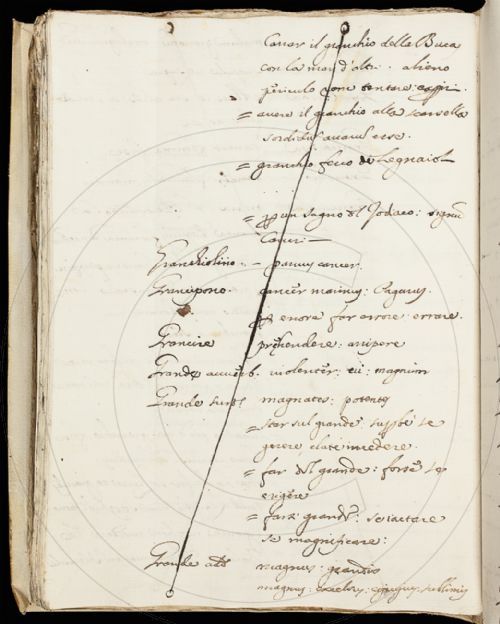 Cauar il granchio della Buca
con la man d'altri . alieno
periculo rem tentare: 
= auere il granchio alla scarsella
sordidu auaru esse.
= granchio ferro de Legnaioli
= p un segno del Zodiaco: signu
Cancri —
Granchiolino. – paruus cancer.
Grancipono. cancer marinus: Pagurus.
p errore far errore. errare.
Grancire prehendere: arripere
Grande auuerb. violenter: ui: magnum
Grande sust. magnates: potentes
= star sul grande. supbe se
gerere, elate incedere.
= far del grande: forte se
erigere
= farsi grande: se iactare
se magnificare:
Grande add. magnus: grandis
magnus: excelsus: sublimis